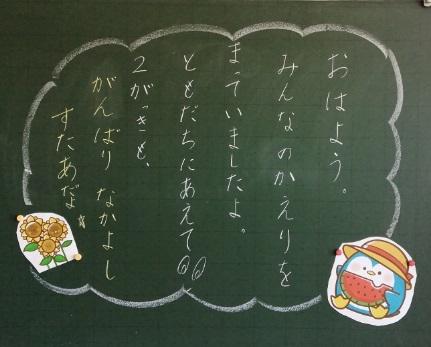 おはよう。
みんなのかえりを
まっていましたよ。
ともだちにあえて
2がっきも、
がんばり なかよし
すたあだよ